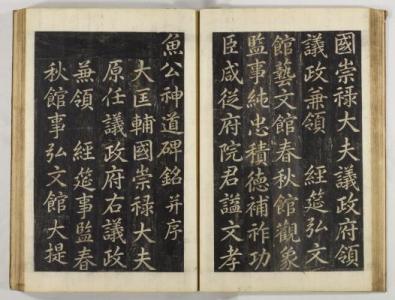 國崇禄大夫議政府領
議政兼領　經筵弘文
館藝文館春秋館觀象
監事純忠積德補祚功
臣咸從府院君謚文孝
魚公神道碑銘并序
大匡輔國崇禄大夫
原任議政府右議政
兼領　經筵事監春
秋館事弘文館大提